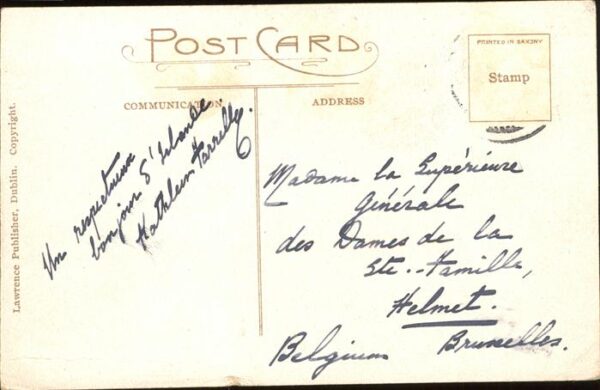 POST CARD
PRINTED IN SAXONY
Stamp
COMMUNICATION.
ADDRESS
Lawrence Publisher, Dublin. Copyright.
Un respectueux
bonjour d'Irlande
Kathleen Farrelly.
Madame la Supérieure
Générale
des Dames de la
Ste.-Famille,
Helmet.
Bruxelles.
Belgium